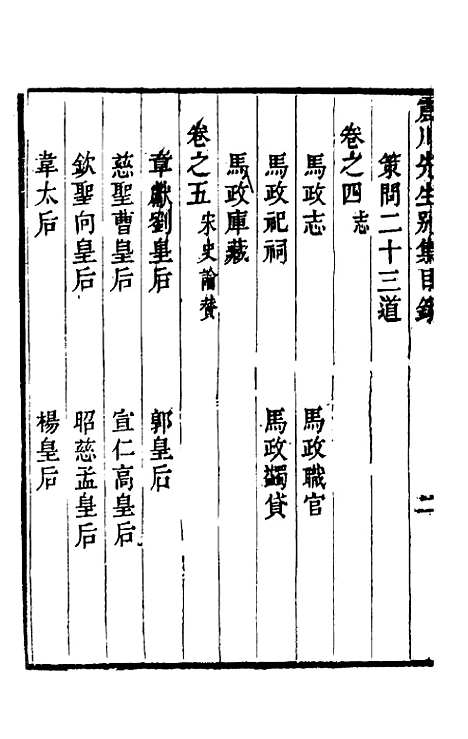 震川先生别集目錄 二
策問二十三道
卷之四 志
馬政志 馬政職官
馬政祀祠 馬政蠲貸
馬政庫藏
卷之五 宋史論贊
章獻劉皇后 郭皇后
慈聖曹皇后 宣仁高皇后
欽聖向皇后 昭慈孟皇后
韋太后 楊皇后